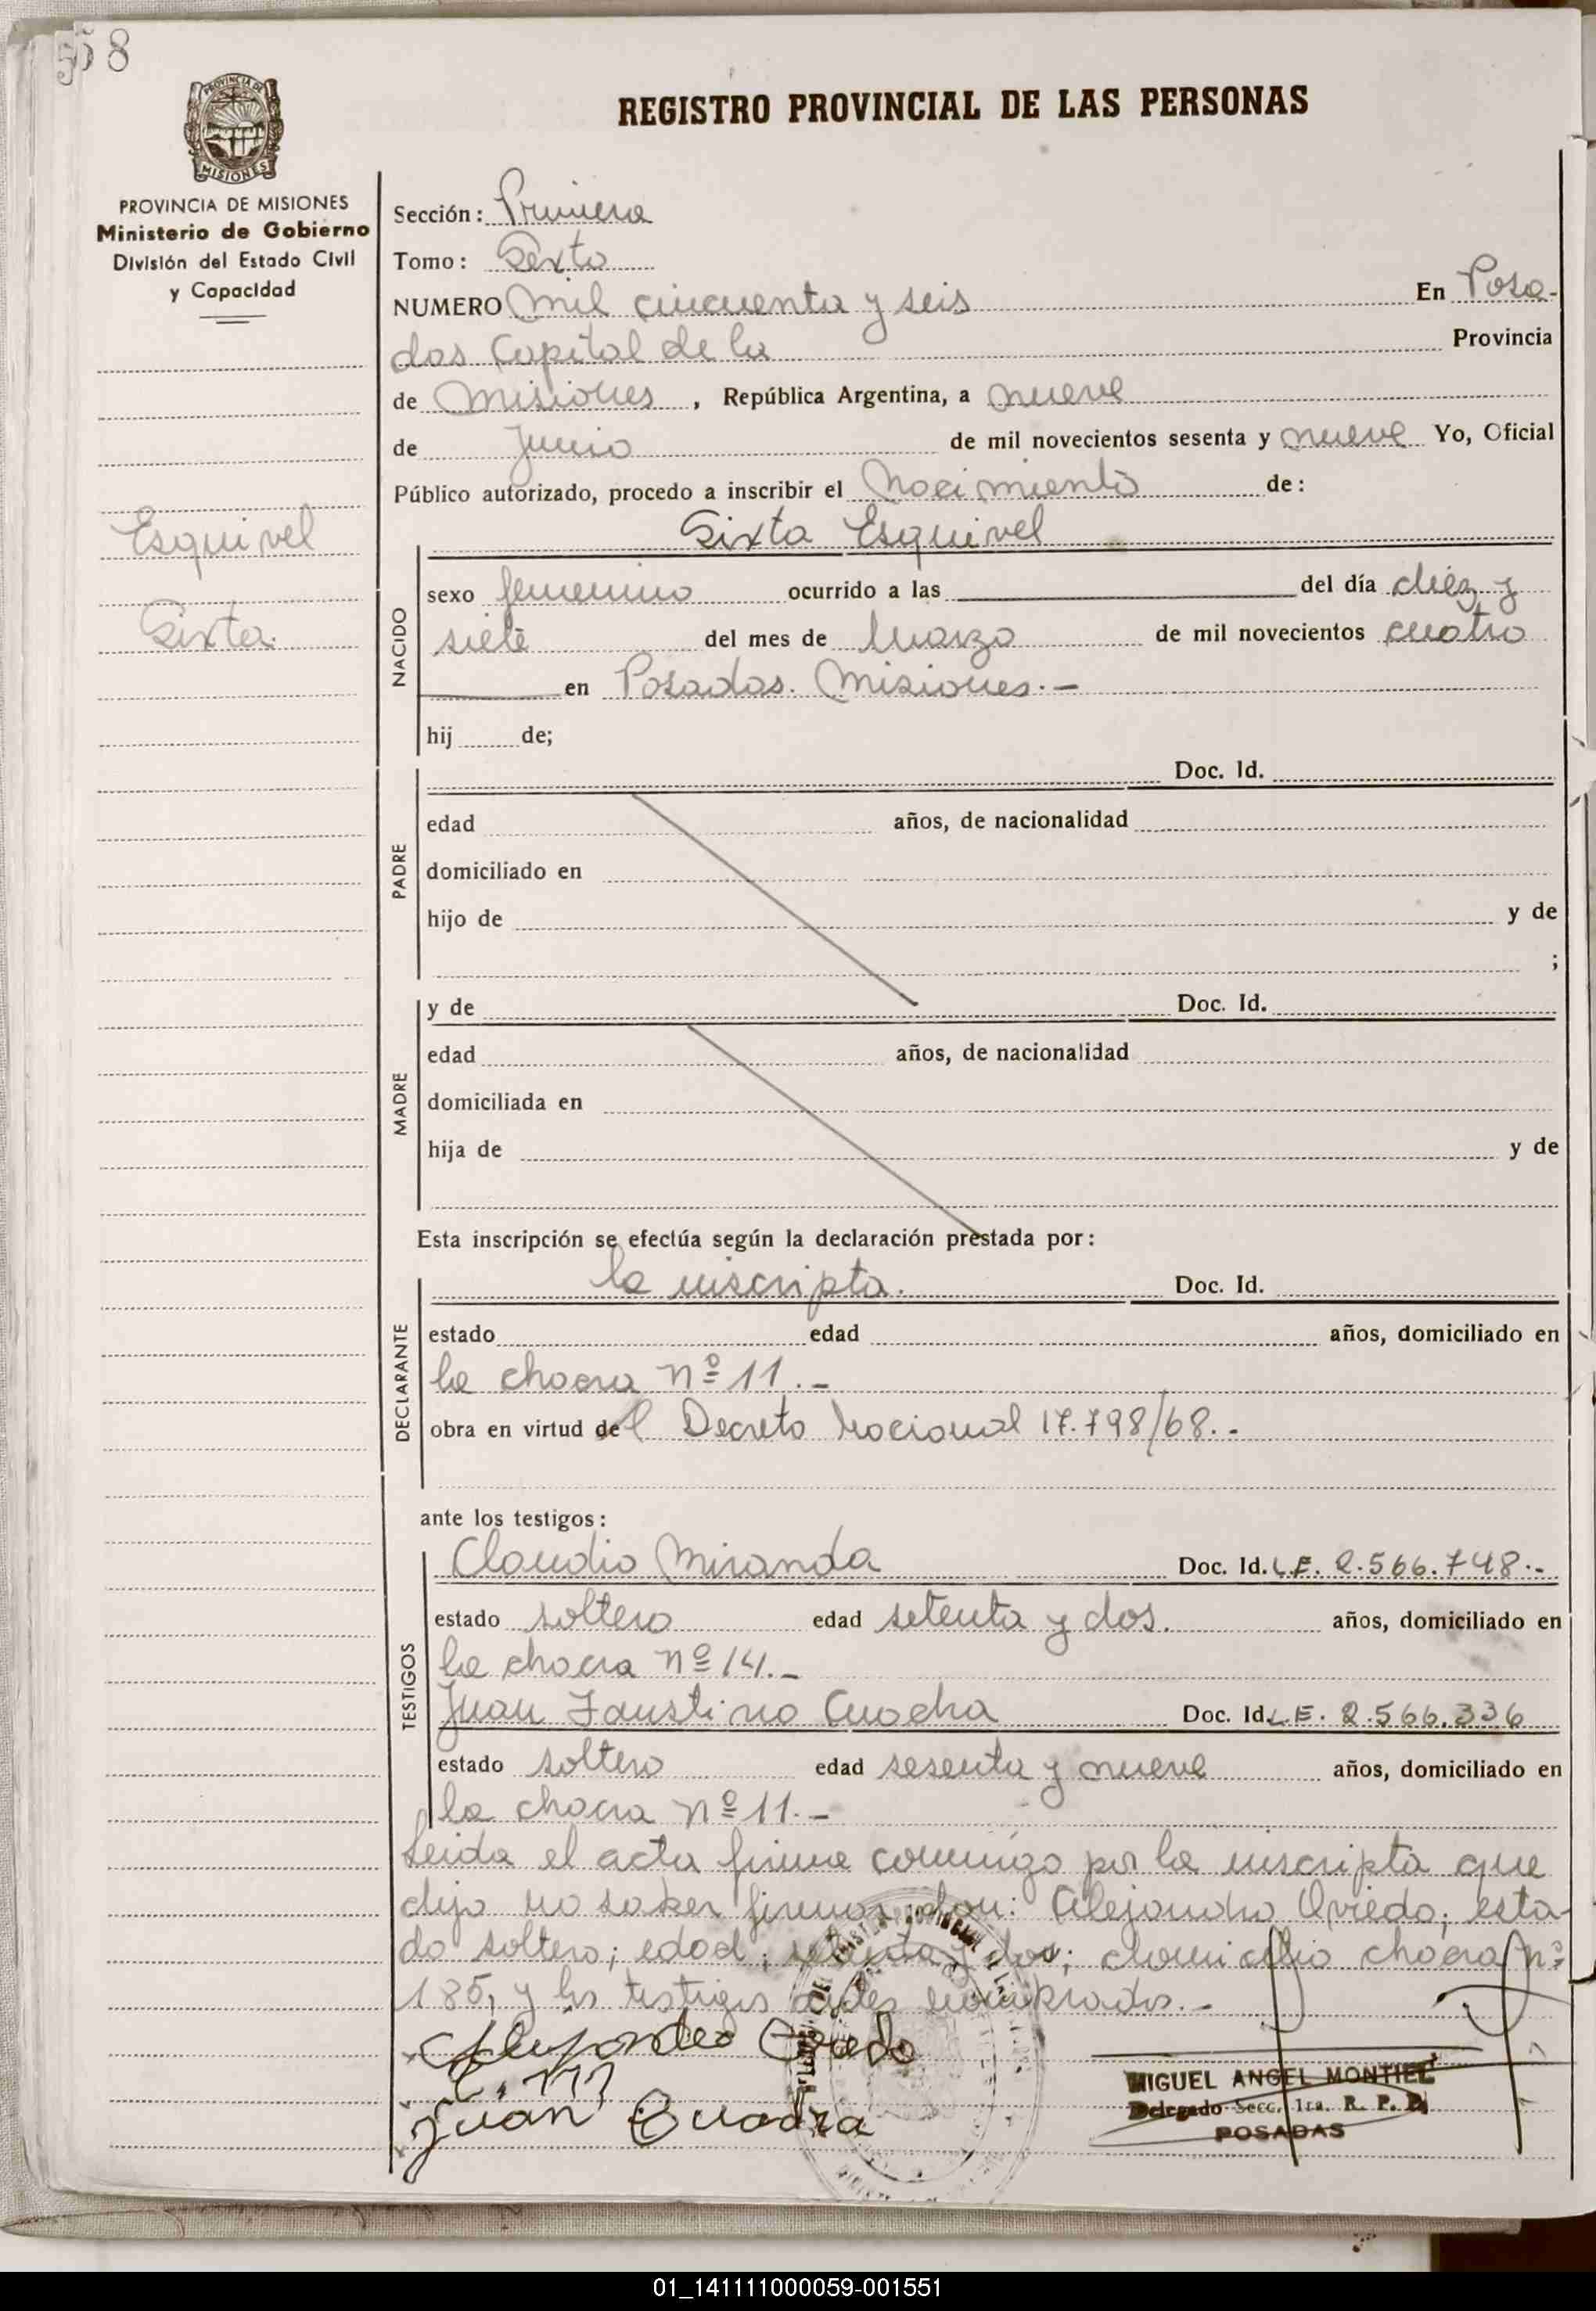 558
PROVINCIA DE
MISIONES
REGISTRO PROVINCIAL DE LAS PERSONAS
PROVINCIA DE MISIONES
Ministerio de Gobierno
División del Estado Civil
y Capacidad
Sección: Primera
Tomo: Sexto
NUMERO Mil cincuenta y seis En Posa-
das Capital de la Provincia
de Misiones, República Argentina, a nueve
de Junio de mil novecientos sesenta y nueve Yo, Oficial
Público autorizado, procedo a inscribir el Nacimiento de:
Esquivel
Sixta
Sixta Esquivel
NACIDO
sexo femenino ocurrido a las del día diez y
siete del mes de Marzo de mil novecientos cuatro
en Posadas. Misiones.-
hij de;
PADRE
Doc. Id.
edad años, de nacionalidad
domiciliado en
hijo de y de
;
MADRE
y de Doc. Id.
edad años, de nacionalidad
domiciliada en
hija de y de
Esta inscripción se efectúa según la declaración prestada por:
DECLARANTE
la inscripta. Doc. Id.
estado edad años, domiciliado en
la chacra Nº 11.-
obra en virtud del Decreto Nacional 17.798/68.-
ante los testigos:
TESTIGOS
Claudio Miranda Doc. Id. L.E. 2.566.748.-
estado soltero edad setenta y dos. años, domiciliado en
la chacra Nº 14.-
Juan Faustino Doc. Id. L.E. 2.566.336
estado soltero edad sesenta y nueve años, domiciliado en
la chacra Nº 11.-
Leida el acta firma conmigo por la inscripta que
dijo no saber firmar don: Alejandro Oviedo; esta-
do soltero; edad; setenta y dos; domicilio chacra Nº
185, y los testigos antes nombrados.-
Alejandro Oviedo
C. M
Juan Cuadra
MIGUEL ANGEL MONTIEL
Delegado Secc. 1ra. R. P. P.
POSADAS
01_141111000059-001551